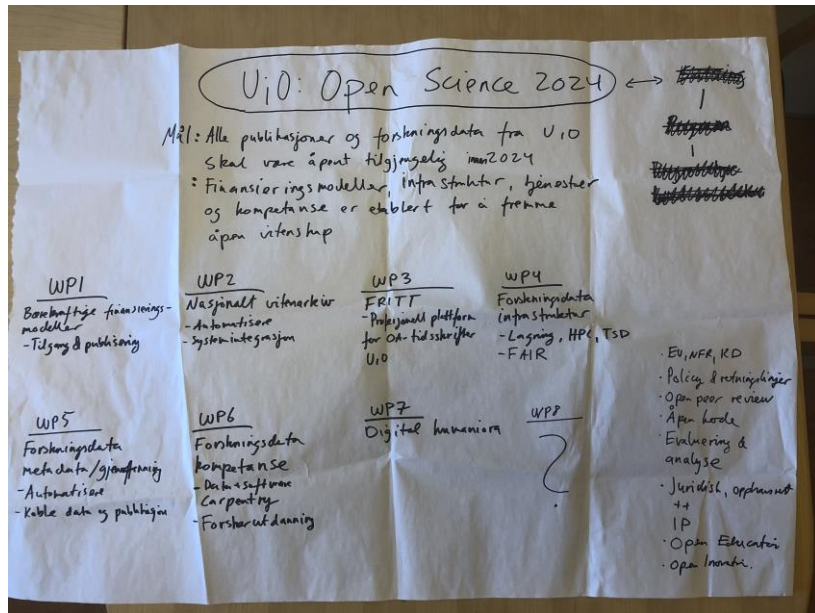 UiO: Open Science 2024 ↔
Mål: Alle publikasjoner og forskningsdata fra UiO
skal være åpent tilgjengelig innen 2024
: Finansieringsmodeller, infrastruktur, tjenester
og kompetanse er etablert for å fremme
åpen vitenskap
WP1
Bærekraftige finansierings-
modeller
- Tilgang & publisering
WP2
Nasjonalt vitenarkiv
- Automatisere
- Systemintegrasjon
WP3
FRITT
- Profesjonell plattform
for OA-tidsskrifter
UiO
WP4
Forskningsdata
infrastruktur
- Lagring, HPC, TSD
- FAIR
WP5
Forskningsdata
metadata/gjenfinning
- Automatisere
- Koble data og publikasjon
WP6
Forskningsdata
kompetanse
- Data & software
Carpentry
- Forskerutdanning
WP7
Digital humaniora
WP8
?
· EU, NFR, KD
· Policy & retningslinjer
· Open peer review
· Åpen kode
· Evaluering &
analyse
· Juridisk, opphavsrett
++
IP
· Open Education
· Open Inovatio.